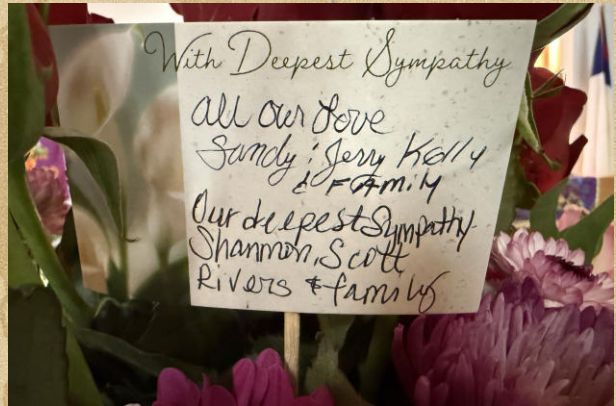 With Deepest Sympathy
All our Love
Sandy & Jerry Kelly
& Family
Our deepest Sympathy
Shannon, Scott
Rivers & family